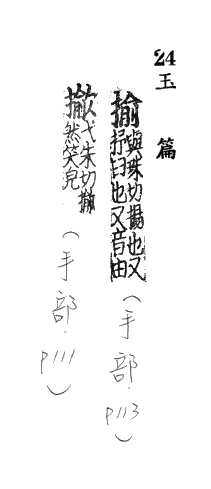 24
玉篇
揄與珠切揚也又抒臼也又音由（手部.P113）
弋朱切揄然笑皃（手部.P111）